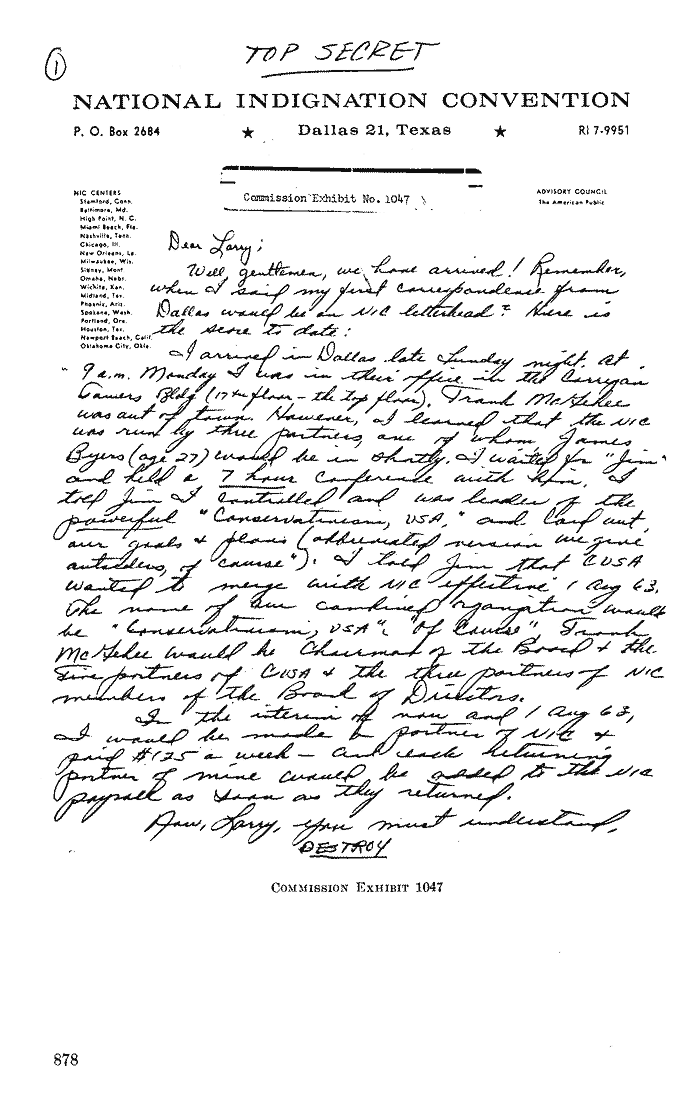 1
TOP SECRET
NATIONAL INDIGNATION CONVENTION
P. O. Box 2684 ★ Dallas 21, Texas ★ RI 7-9951
Commission Exhibit No. 1047
NIC CENTERS
Stamford, Conn.
Baltimore, Md.
High Point, N. C.
Miami Beach, Fla.
Nashville, Tenn.
Chicago, Ill.
New Orleans, La.
Milwaukee, Wis.
Sidney, Mont
Omaha, Nebr.
Wichita, Kan.
Midland, Tex.
Phoenix, Ariz.
Spokane, Wash.
Portland, Ore.
Houston, Tex.
Newport Beach, Calif.
Oklahoma City, Okla.
ADVISORY COUNCIL
The American Public
Dear Larry;
Well, gentlemen, we have arrived! Remember,
when I said my first correspondence from
Dallas would be on NIC letterhead? Here is
the score to date:
I arrived in Dallas late Sunday night. At
9 a.m. Monday I was in their office in the Corrigan
Towers Bldg (17th floor - the top floor), Frank McGehee
was out of town. However, I learned that the NIC
was run by three partners, one of whom, James
Byers (age 27) would be in shortly. I waited for "Jim"
and held a 7 hour conference with him. I
told Jim I controlled and was leader of the
powerful "Conservatism, USA," and laid out
our goals & plans (abbreviated version we give
outsiders, of course"). I told Jim that CUSA
wanted to merge with NIC effective 1 Aug 63.
The name of our combined organization would
be "Conservatism, USA". "Of Course" Frank
McGehee would be Chairman of the Board & the
five partners of CUSA & the three partners of NIC
members of the Board of Directors.
In the interim of now and 1 Aug 63,
I would be made a partner of NIC &
paid $125 a week - and each returning
partner of mine would be added to the NIC
payroll as soon as they returned.
Now, Larry, you must understand,
DESTROY
COMMISSION EXHIBIT 1047
878